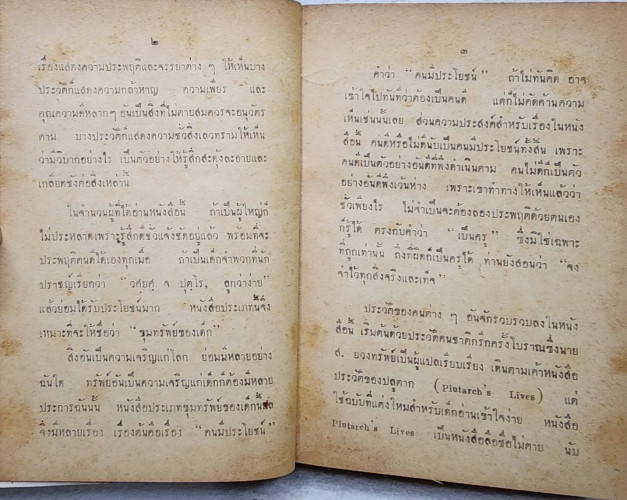 ๒
เรื่องแสดงความประพฤติและจรรยาต่าง ๆ ให้เห็นบาง
ประวัติก็แสดงความกล้าหาญ ความเพียร และ
คุณความดีหลากๆ อันเป็นสิ่งที่ไม่ตายสมควรจะอนุวัตร
ตาม บางประวัติก็แสดงความชั่วสิ่งเลวทรามให้เห็น
ว่ามีวิบากอย่างไร เป็นตัวอย่างให้รู้สึกสะดุ้งละอายและ
เกลียดชังต่อสิ่งเหล่านั้น
ในจำนวนผู้ที่ได้อ่านหนังสือนี้ ถ้าเป็นผู้ใหญ่ก็
ไม่ประหลาดเพราะรู้สึกดีชั่วแจ้งชัดอยู่แล้ว พร้อมที่จะ
ประพฤติตนดีได้เองทุกเมื่อ ถ้าเป็นเด็กจำพวกที่นัก
ปราชญ์เรียกว่า "วสฺยคู จ ปุตฺโร, ลูกว่าง่าย"
แล้วย่อมได้รับประโยชน์มาก หนังสือประเภทนี้จึง
เหมาะที่จะให้ชื่อว่า "ขุมทรัพย์ของเด็ก"
สิ่งอันเป็นความเจริญแก่โลก ย่อมมีหลายอย่าง
ฉันใด ทรัพย์อันเป็นความเจริญแก่เด็กก็ต้องมีหลาย
ประการฉันนั้น หนังสือประเภทขุมทรัพย์ของเด็กนี้
จึงมีหลายเรื่อง เรื่องต้นคือเรื่อง "คนมีประโยชน์"
๓
คำว่า "คนมีประโยชน์" ถ้าไม่ทันคิด อาจ
เข้าใจไปทันทีว่าต้องเป็นคนดี แต่ก็ไม่คัดค้านความ
เห็นเช่นนั้นเลย ส่วนความประสงค์สำหรับเรื่องในหนัง
สือนี้ คนดีหรือไม่ดีนับเป็นคนมีประโยชน์ทั้งสิ้น เพราะ
คนดีเป็นตัวอย่างอันดีที่พึงดำเนินตาม คนไม่ดีก็เป็นตัว
อย่างอันดีพึงเว้นห่าง เพราะเขาทำทางให้เห็นแล้วว่า
ชั่วเพียงไร ไม่จำเป็นจะต้องลองประพฤติด้วยตนเอง
ก็รู้ได้ ตรงกับคำว่า "เป็นครู" ซึ่งมิใช่เฉพาะ
ที่ถูกเท่านั้น ถึงที่ผิดก็เป็นครูได้ ท่านยังสอนว่า "จง
จำไว้ทุกสิ่งจริงและเท็จ"
ประวัติของคนต่าง ๆ อันจักรวบรวมลงในหนัง
สือนี้ เริ่มต้นด้วยประวัติคนชาติกรีกครั้งโบราณซึ่งนาย
ส. ยวงทรัพย์เป็นผู้แปลเรียบเรียง เดินตามเค้าหนังสือ
ประวัติของปลูตาก (Plutarch's Lives) แต่
ใช้ฉบับที่แต่งใหม่สำหรับเด็กอ่านเข้าใจง่าย หนังสือ
Plutarch's Lives เป็นหนังสือลือชื่อไม่ตาย นับ